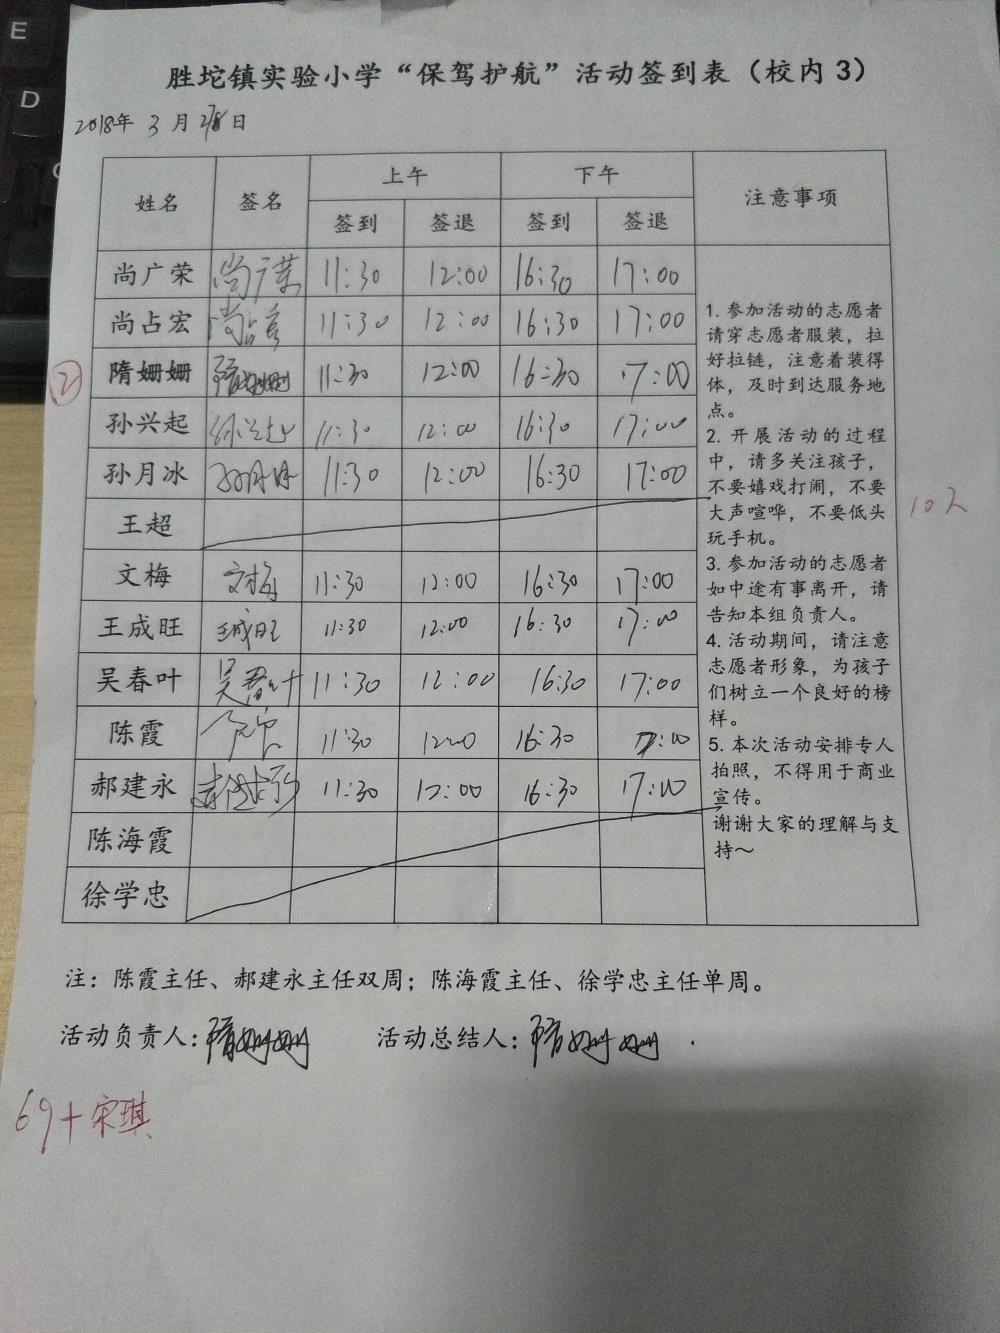 E
D
胜坨镇实验小学“保驾护航”活动签到表（校内3）
2018年 3月28日
姓名 签名 上午 下午 注意事项
签到 签退 签到 签退
尚广荣 尚广荣 11:30 12:00 16:30 17:00
尚占宏 尚占宏 11:30 12:00 16:30 17:00
② 隋姗姗 隋姗姗 11:30 12:00 16:30 17:00
孙兴起 孙兴起 11:30 12:00 16:30 17:00
孙月冰 孙月冰 11:30 12:00 16:30 17:00
王超
文梅 文梅 11:30 12:00 16:30 17:00
王成旺 王成旺 11:30 12:00 16:30 17:00
吴春叶 吴春叶 11:30 12:00 16:30 17:00
陈霞 11:30 12:00 16:30 17:00
郝建永 郝建永 11:30 12:00 16:30 17:00
陈海霞
徐学忠
1. 参加活动的志愿者
请穿志愿者服装，拉
好拉链，注意着装得
体，及时到达服务地
点。
2. 开展活动的过程
中，请多关注孩子，
不要嬉戏打闹，不要
大声喧哗，不要低头
玩手机。
3. 参加活动的志愿者
如中途有事离开，请
告知本组负责人。
4. 活动期间，请注意
志愿者形象，为孩子
们树立一个良好的榜
样。
5. 本次活动安排专人
拍照，不得用于商业
宣传。
谢谢大家的理解与支
持～
10人
注：陈霞主任、郝建永主任双周；陈海霞主任、徐学忠主任单周。
活动负责人：隋姗姗 活动总结人：隋姗姗.
69+宋琪